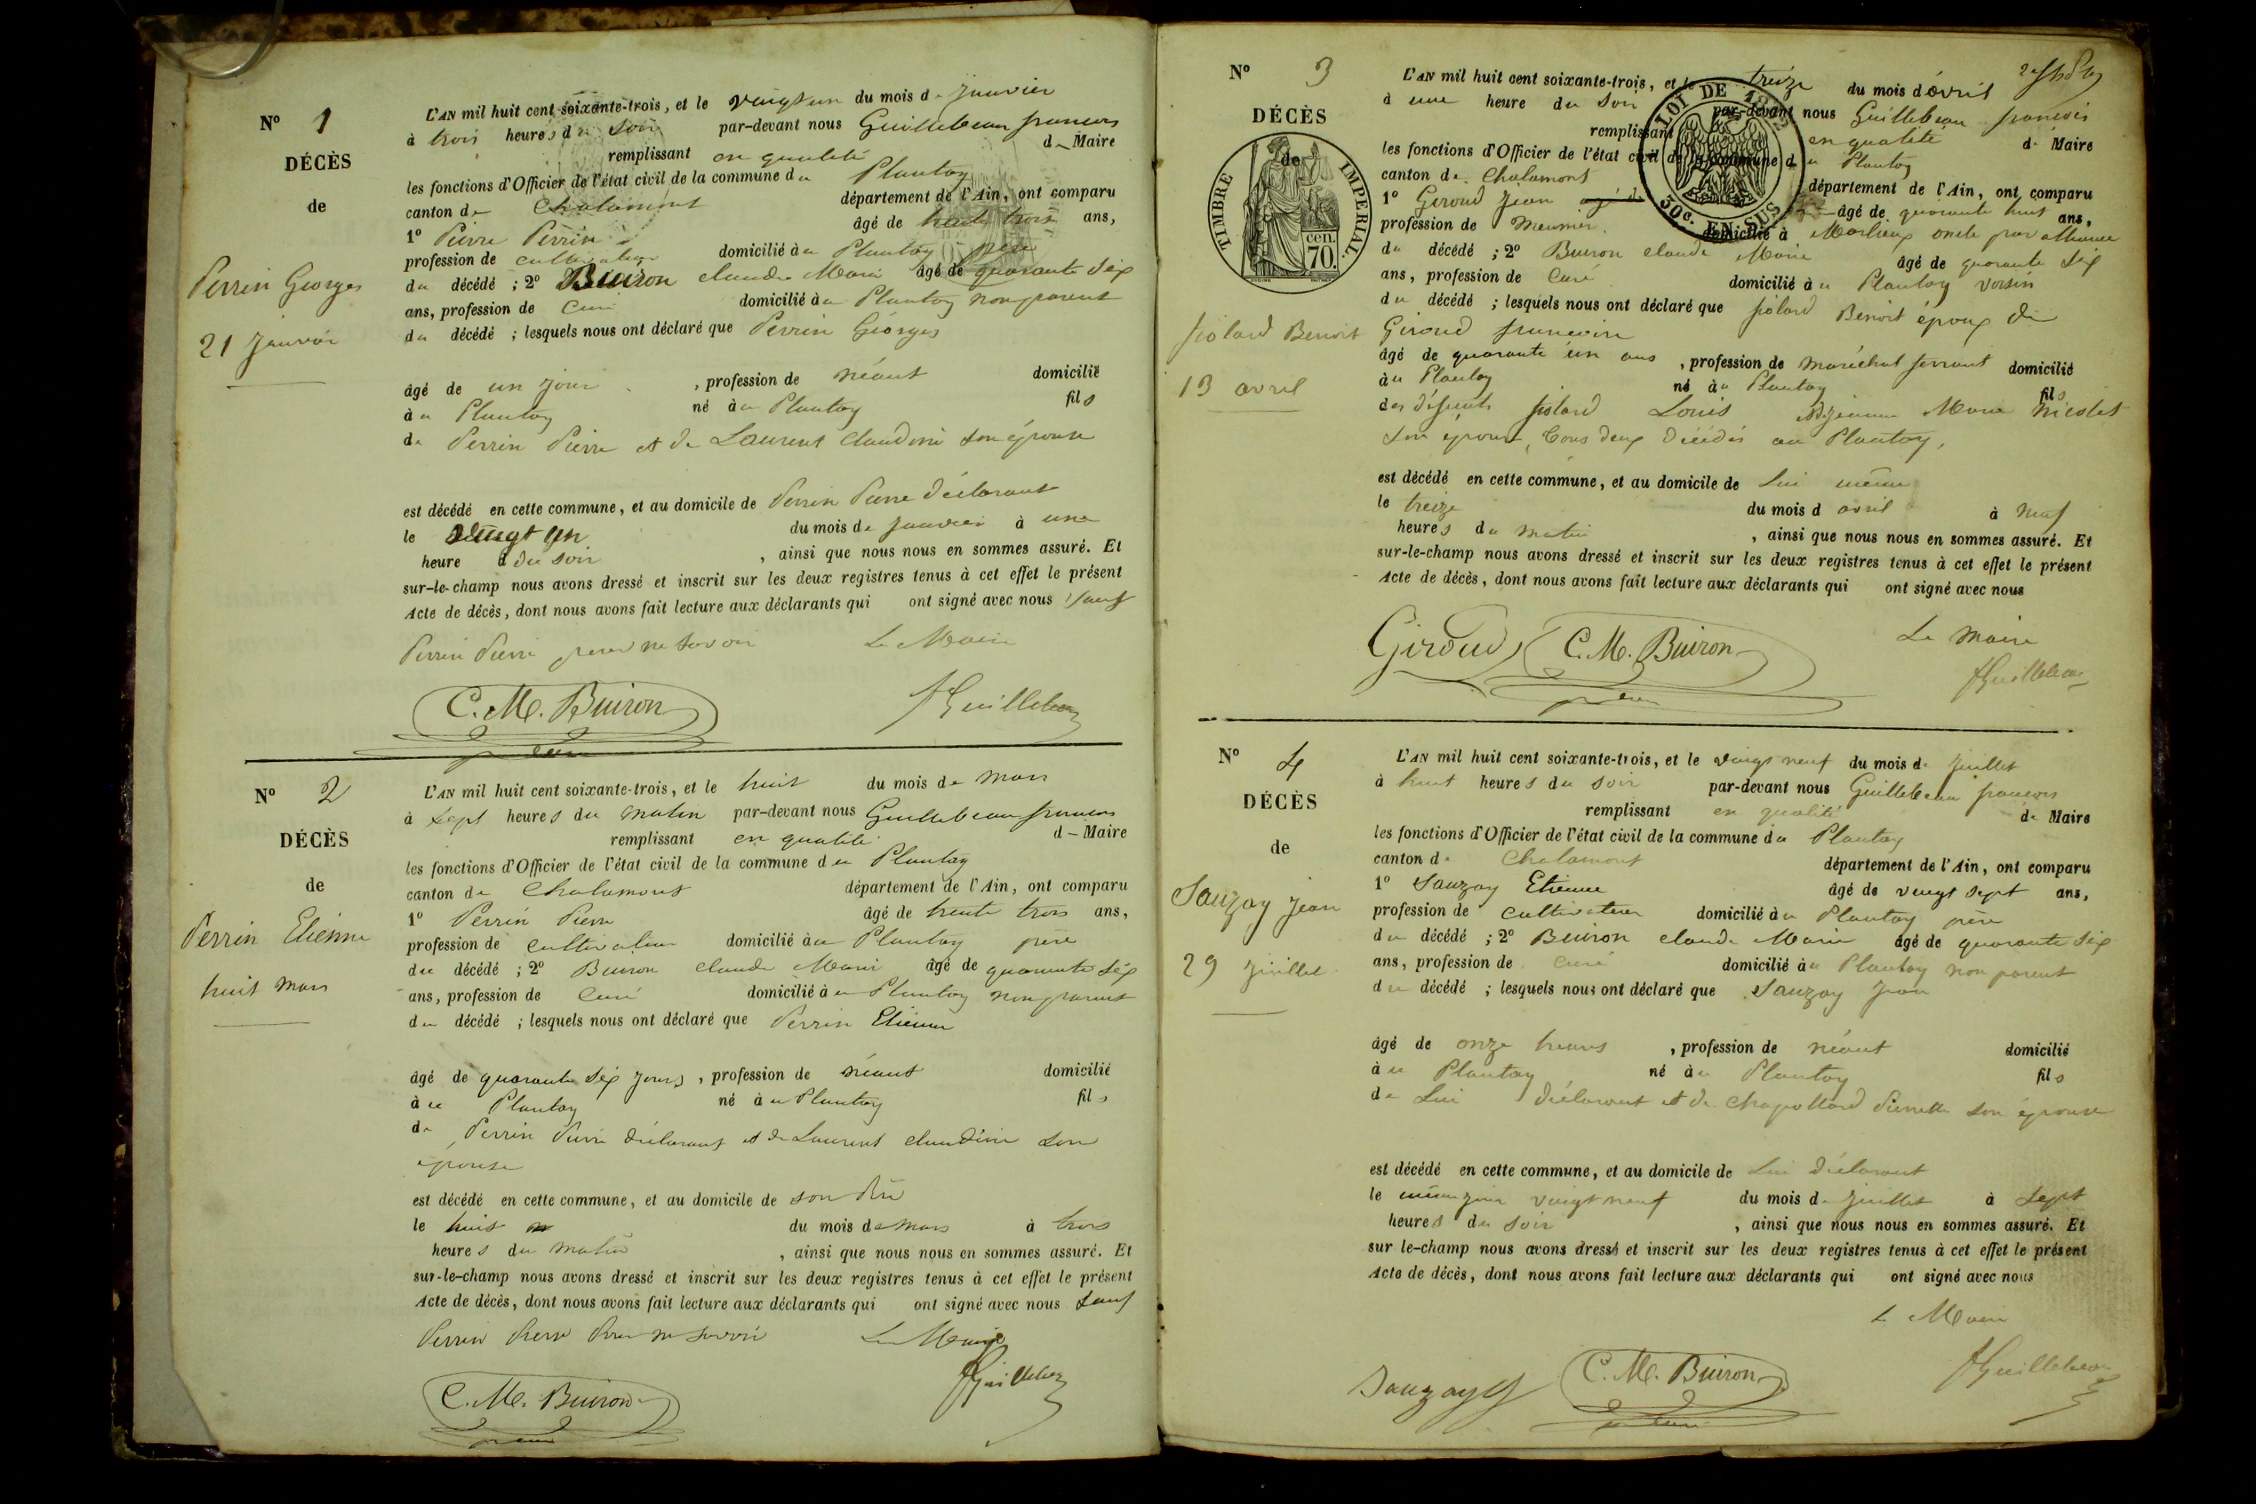 N° 1
DÉCÈS
de
Perrin Georges
21 Janvier
L'AN mil huit cent soixante-trois, et le vingt un du mois de Janvier
à trois heures du soir par-devant nous Guillebeau francois
remplissant en qualité de Maire
les fonctions d'Officier de l'état civil de la commune du Plantay
canton de Chalamont département de l'Ain, ont comparu
1° Pierre Perrin âgé de trente trois ans,
profession de cultivateur domicilié au Plantay père
du décédé ; 2° Buiron claude Marie âgé de quarante six
ans, profession de Curé domicilié au Plantay non parent
du décédé ; lesquels nous ont déclaré que Perrin Georges
âgé de un jour , profession de néant domicilié
au Plantay né au Plantay fils
de Perrin Pierre et de Laurent Claudine son épouse
est décédé en cette commune, et au domicile de Perrin Pierre déclarant
le vingt un du mois de Janvier à une
heure d du soir , ainsi que nous nous en sommes assuré. Et
sur-le-champ nous avons dressé et inscrit sur les deux registres tenus à cet effet le présent
Acte de décès, dont nous avons fait lecture aux déclarants qui ont signé avec nous sauf
Perrin Pierre pour ne savoir Le Maire
C. M. Buiron
fGuillebeau
N° 2
DÉCÈS
de
Perrin Etienne
huit mars
L'AN mil huit cent soixante-trois, et le huit du mois de Mars
à sept heures du matin par-devant nous Guillebeau francois
remplissant en qualité d Maire
les fonctions d'Officier de l'état civil de la commune du Plantay
canton de Chalamont département de l'Ain, ont comparu
1° Perrin Pierre âgé de trente trois ans,
profession de cultivateur domicilié au Plantay père
du décédé ; 2° Buiron claude Marie âgé de quarante six
ans, profession de Curé domicilié au Plantay non parent
du décédé ; lesquels nous ont déclaré que Perrin Etienne
âgé de quarante six jours , profession de néant domicilié
au Plantay né au Plantay fils
de Perrin Pierre déclarant et de Laurent claudine son
épouse
est décédé en cette commune, et au domicile de son père
le huit du mois de Mars à trois
heures du matin , ainsi que nous nous en sommes assuré. Et
sur-le-champ nous avons dressé et inscrit sur les deux registres tenus à cet effet le présent
Acte de décès, dont nous avons fait lecture aux déclarants qui ont signé avec nous sauf
Perrin Pierre pour ne savoir Le Maire
C. M. Buiron
fGuillebeau
N° 3
DÉCÈS
de
TIMBRE IMPÉRIAL.
cen. 70
LOI DE 1862
50c. EN SUS
fiolard Benoit
13 avril
L'AN mil huit cent soixante-trois, et le treize du mois d'avril
à une heure du soir par-devant nous Guillebeau francois
remplissant en qualité de Maire
les fonctions d'Officier de l'état civil de la commune du Plantay
canton de Chalamont département de l'Ain, ont comparu
1° Giroud Jean âgé de quarante huit ans,
profession de Meunier domicilié à Marlieux oncle par alliance
du décédé ; 2° Buiron claude Marie âgé de quarante six
ans, profession de Curé domicilié au Plantay voisin
du décédé ; lesquels nous ont déclaré que fiolard Benoit époux de
Giroud francoise
âgé de quarante un ans , profession de maréchal ferrant domicilié
au Plantay né au Plantay fils
des défunts fiolard Louis et Jeanne Marie Nicolet
son épouse, tous deux décédés au Plantay,
est décédé en cette commune, et au domicile de Lui même
le treize du mois d avril à neuf
heures du matin , ainsi que nous nous en sommes assuré. Et
sur-le-champ nous avons dressé et inscrit sur les deux registres tenus à cet effet le présent
Acte de décès, dont nous avons fait lecture aux déclarants qui ont signé avec nous
Giroud C. M. Buiron Le Maire
fGuillebeau
N° 4
DÉCÈS
de
Sauzay Jean
29 Juillet
L'AN mil huit cent soixante-trois, et le vingt neuf du mois de Juillet
à huit heures du soir par-devant nous Guillebeau francois
remplissant en qualité de Maire
les fonctions d'Officier de l'état civil de la commune du Plantay
canton de Chalamont département de l'Ain, ont comparu
1° Sauzay Etienne âgé de vingt sept ans,
profession de cultivateur domicilié au Plantay père
du décédé ; 2° Buiron claude Marie âgé de quarante six
ans, profession de Curé domicilié au Plantay non parent
du décédé ; lesquels nous ont déclaré que Sauzay Jean
âgé de onze heures , profession de néant domicilié
au Plantay né au Plantay fils
de Lui déclarant et de Chapolard Pierrette son épouse
est décédé en cette commune, et au domicile de Lui déclarant
le même jour vingt neuf du mois de Juillet à sept
heures du soir , ainsi que nous nous en sommes assuré. Et
sur le-champ nous avons dressé et inscrit sur les deux registres tenus à cet effet le présent
Acte de décès, dont nous avons fait lecture aux déclarants qui ont signé avec nous
Le Maire
Sauzay C. M. Buiron fGuillebeau